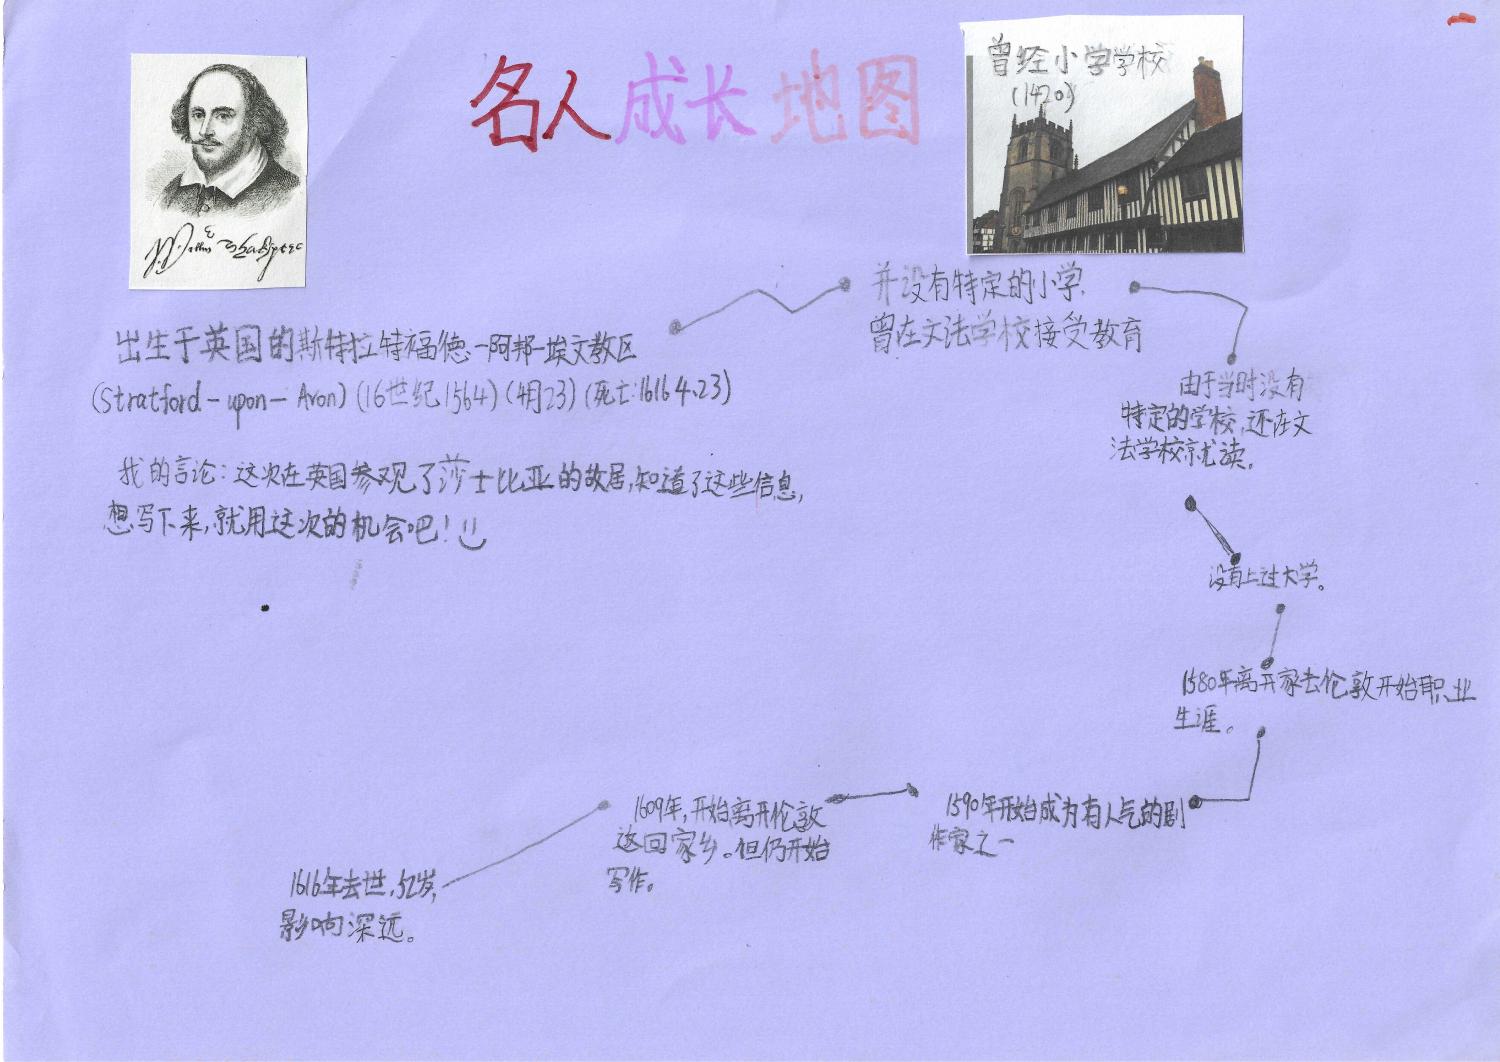 名人成长地图
曾经小学学校
(1420)
出生于英国的斯特拉特福德-阿邦-埃文教区
(Stratford-upon-Avon)(16世纪1564)(4月23)(死亡:1616 4.23)
我的言论:这次在英国参观了莎士比亚的故居,知道了这些信息,
想写下来,就用这次的机会吧!
并没有特定的小学.
曾在文法学校接受教育
由于当时没有
特定的学校,还在文
法学校就读。
没有上过大学。
1580年离开家去伦敦开始职业
生涯。
1590年开始成为有人气的剧
作家之一
1609年,开始离开伦敦
返回家乡。但仍开始
写作。
1616年去世,52岁,
影响深远。